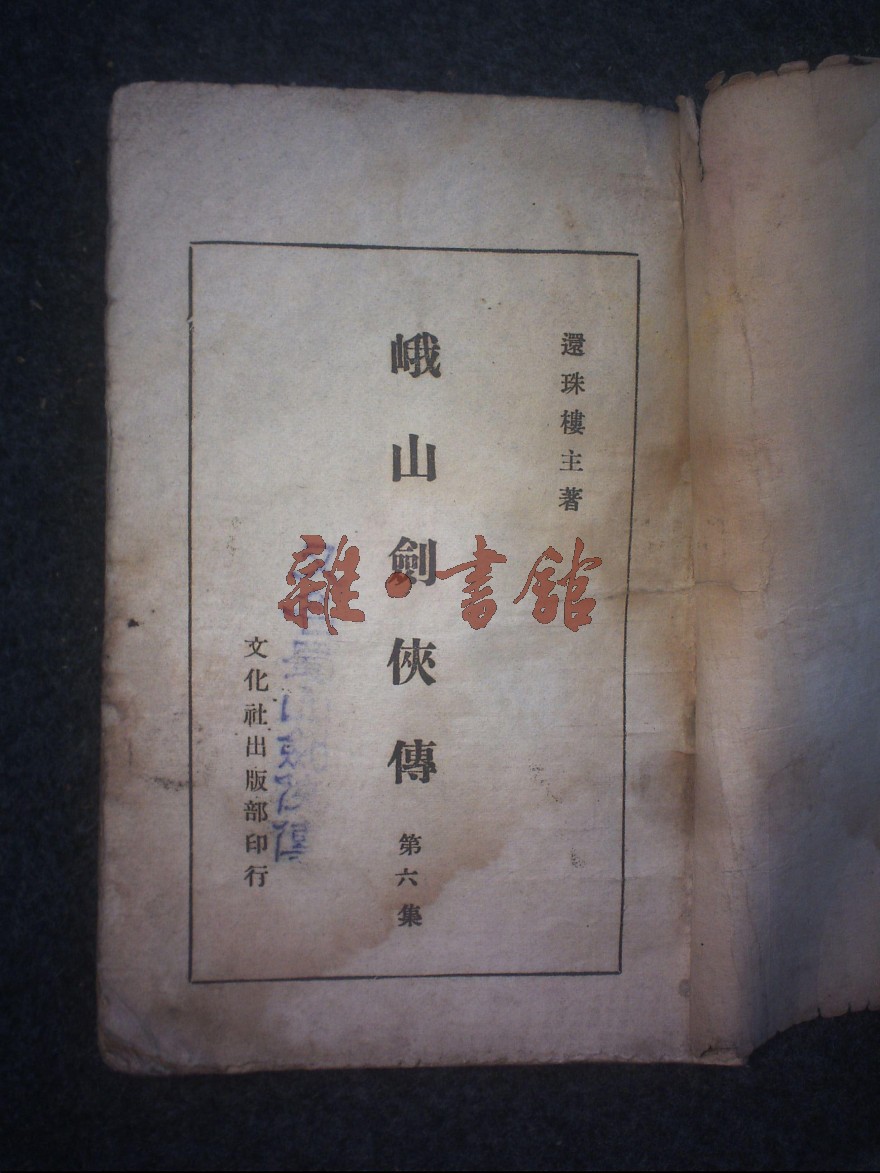 還珠樓主著
峨山劍俠傳 第六集
文化社出版部印行
雜·書館